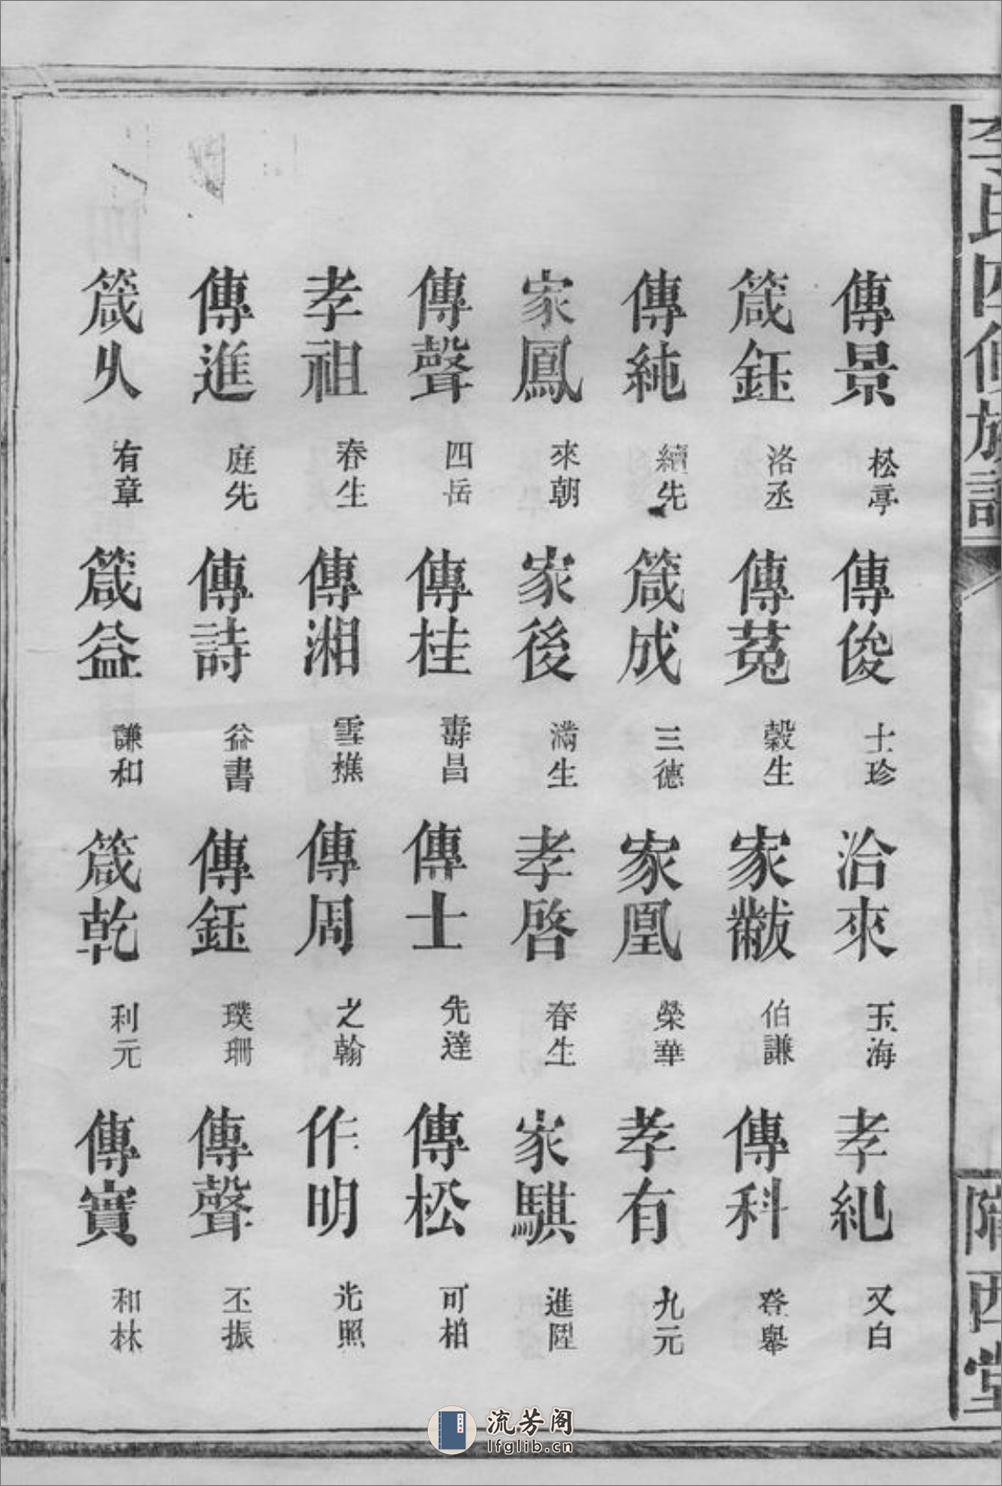 李氏四修族譜
隴西堂
傳景 松亭 傳俊 士珍 洽來 玉海 孝紀 又白
箴鈺 洛丞 傳莬 穀生 家黻 伯謙 傳科 登舉
傳純 續先 箴成 三德 家凰 榮華 孝有 九元
家鳳 來朝 家後 滿生 孝啓 春生 家騏 進陞
傳聲 四岳 傳桂 壽昌 傳士 先達 傳松 可柏
孝祖 春生 傳湘 雪樵 傳周 之翰 作明 光照
傳進 庭先 傳詩 益書 傳鈺 璞珊 傳聲 丕振
箴乆 有章 箴益 謙和 箴乾 利元 傳寶 和林
流芳阁
lfglib.cn